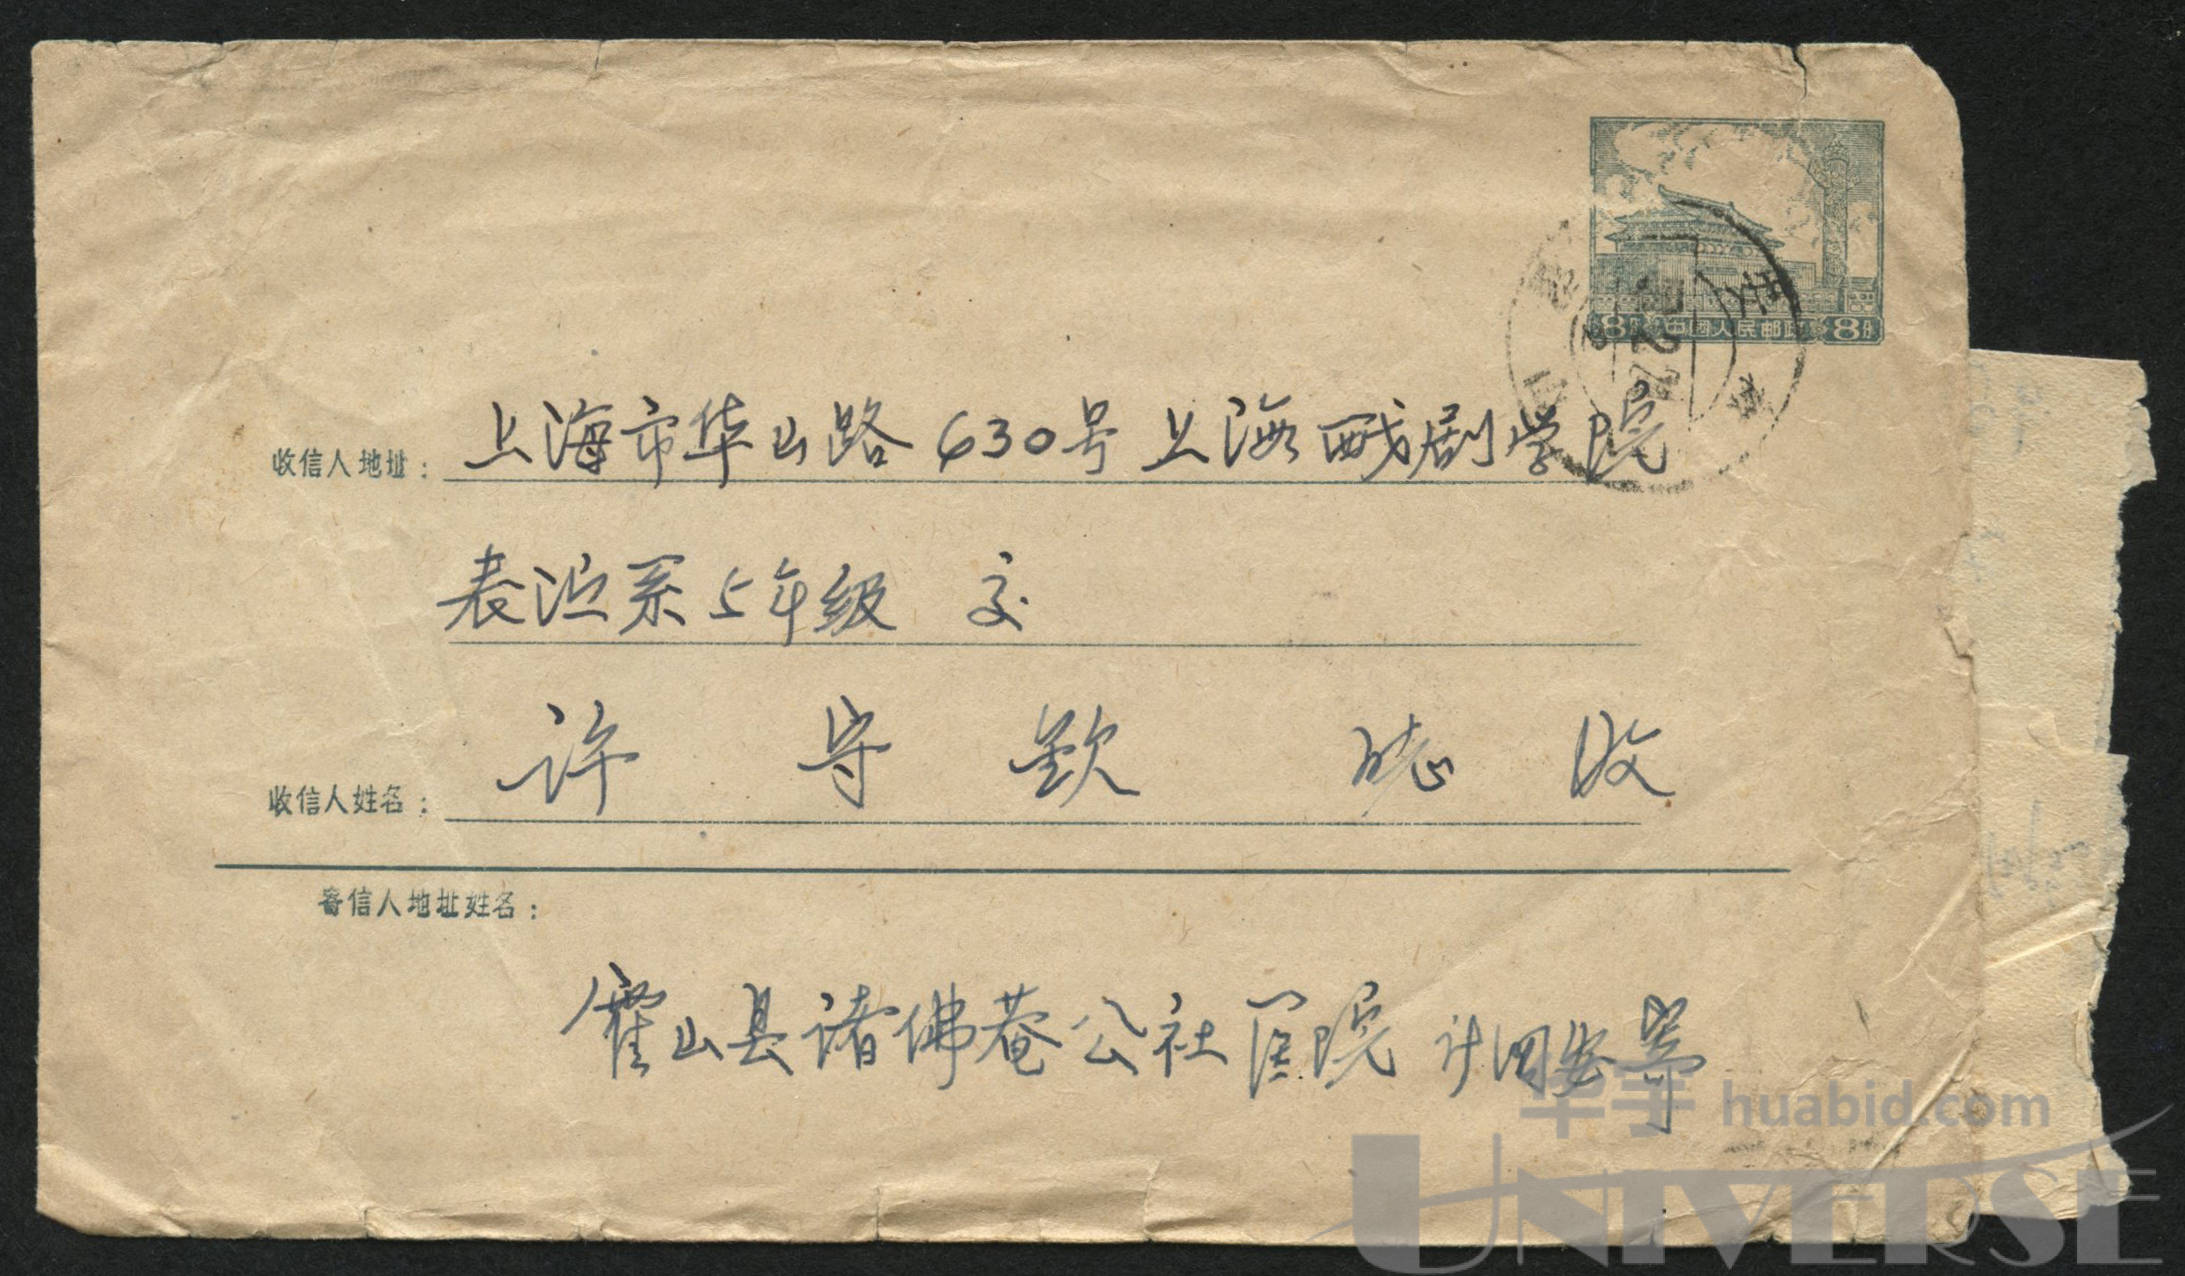 8分 中國人民邮政 8分
收信人地址: 上海市华山路630号上海戏剧学院
表演系5年级 交
收信人姓名: 许守钦 收
寄信人地址姓名:
霍山县诸佛菴公社医院
华宇 huabid.com
UNIVERSE